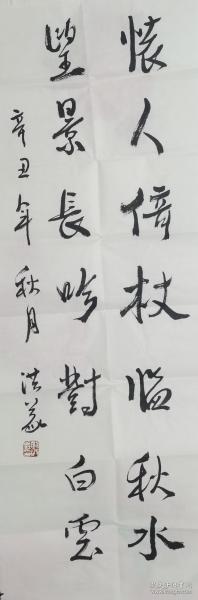 懷人倚杖臨秋水
望景長吟對白雲
辛丑年秋月 洪義